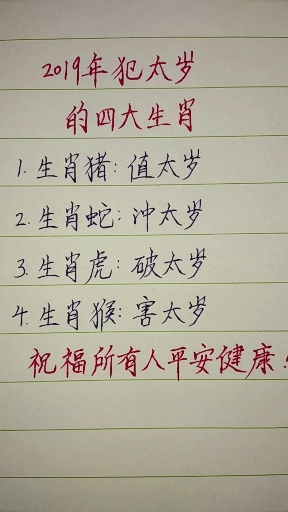 2019年犯太岁
的四大生肖
1.生肖猪:值太岁
2.生肖蛇:冲太岁
3.生肖虎:破太岁
4.生肖猴:害太岁
祝福所有人平安健康!